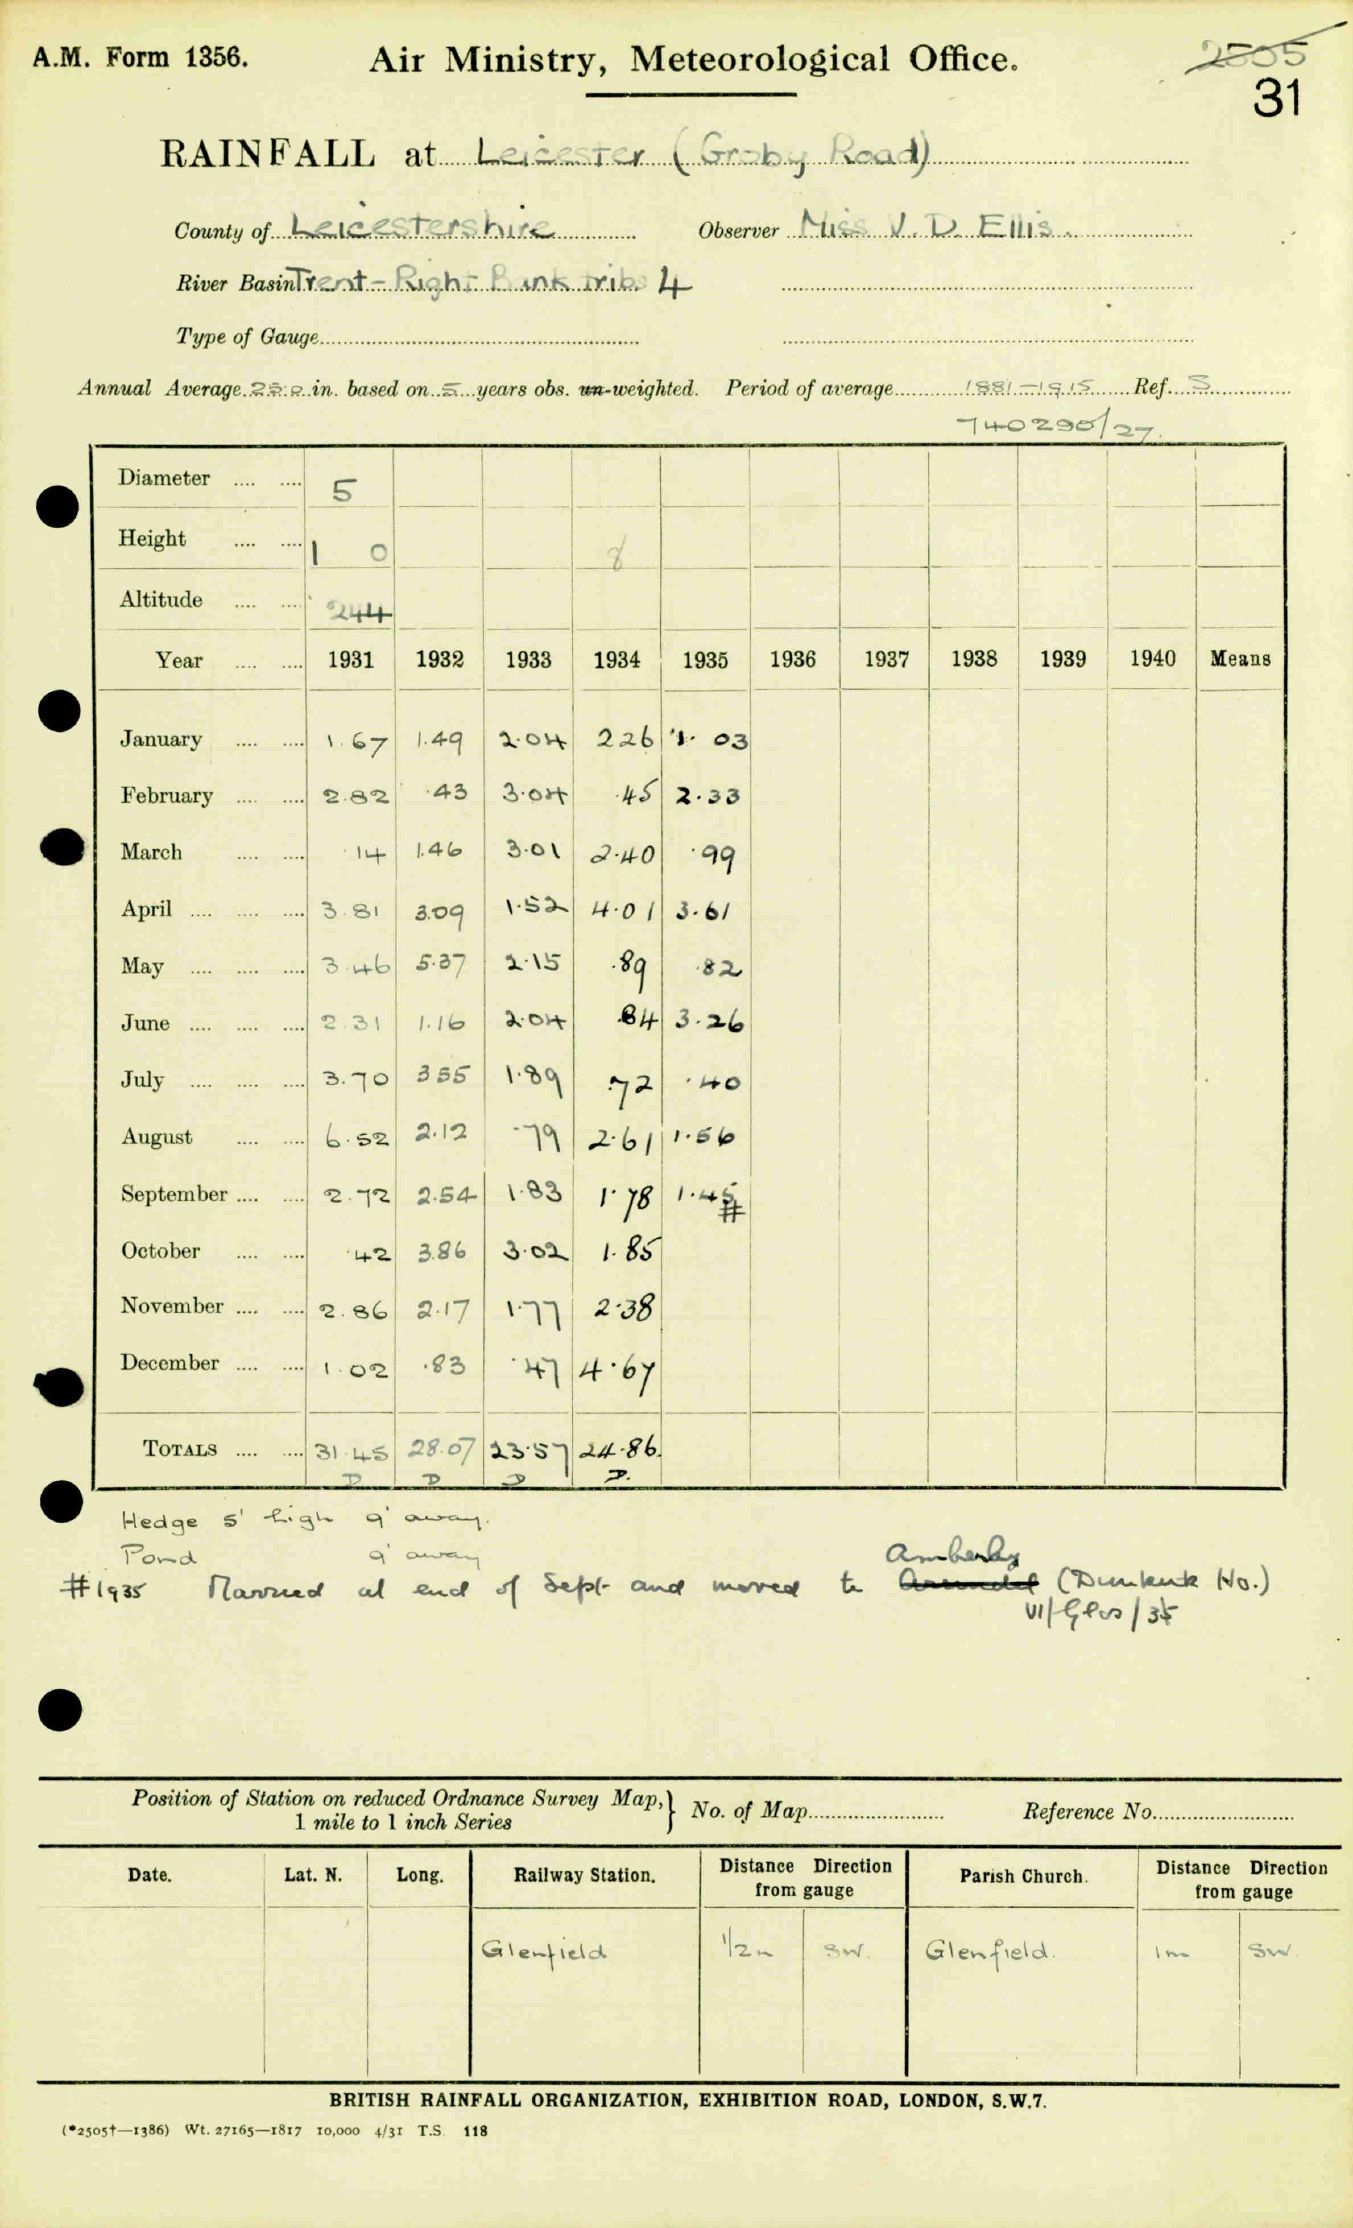 A.M. Form 1356. Air Ministry, Meteorological Office. 2505
31
RAINFALL at Leicester (Groby Road)
County of Leicestershire Observer Miss V. D. Ellis.
River Basin Trent - Right Bank tribs 4
Type of Gauge
Annual Average 25.0 in. based on 5 years obs. un-weighted. Period of average 1881-1915 Ref. S
740290/27.
Diameter .... .... 5
Height .... .... 1 0 8
Altitude .... .... 244
Year .... .... 1931 1932 1933 1934 1935 1936 1937 1938 1939 1940 Means
January .... .... 1.67 1.49 2.04 2.26 1.03
February .... .... 2.82 .43 3.04 .45 2.33
March .... .... .14 1.46 3.01 2.40 .99
April .... .... .... 3.81 3.09 1.52 4.01 3.61
May .... .... .... 3.46 5.37 2.15 .89 .82
June .... .... .... 2.31 1.16 2.04 .84 3.26
July .... .... .... 3.70 3.55 1.89 .72 .40
August .... .... 6.52 2.12 .79 2.61 1.56
September .... .... 2.72 2.54 1.83 1.78 1.45 #
October .... .... .42 3.86 3.02 1.85
November .... .... 2.86 2.17 1.77 2.38
December .... .... 1.02 .83 .47 4.67
TOTALS .... .... 31.45 28.07 23.57 24.86.
D D D D.
Hedge 5' high 9' away.
Pond 9' away
Amberley
#1935 Married at end of Sept and moved to Arundel (Dunkirk Ho.)
VI/Glos/35
Position of Station on reduced Ordnance Survey Map, } No. of Map Reference No.
1 mile to 1 inch Series
Date. Lat. N. Long. Railway Station. Distance Direction from gauge Parish Church. Distance Direction from gauge
Glenfield 1/2m SW. Glenfield. 1m SW.
BRITISH RAINFALL ORGANIZATION, EXHIBITION ROAD, LONDON, S.W.7.
(*2505†—1386) Wt. 27165—1817 10,000 4/31 T.S. 118